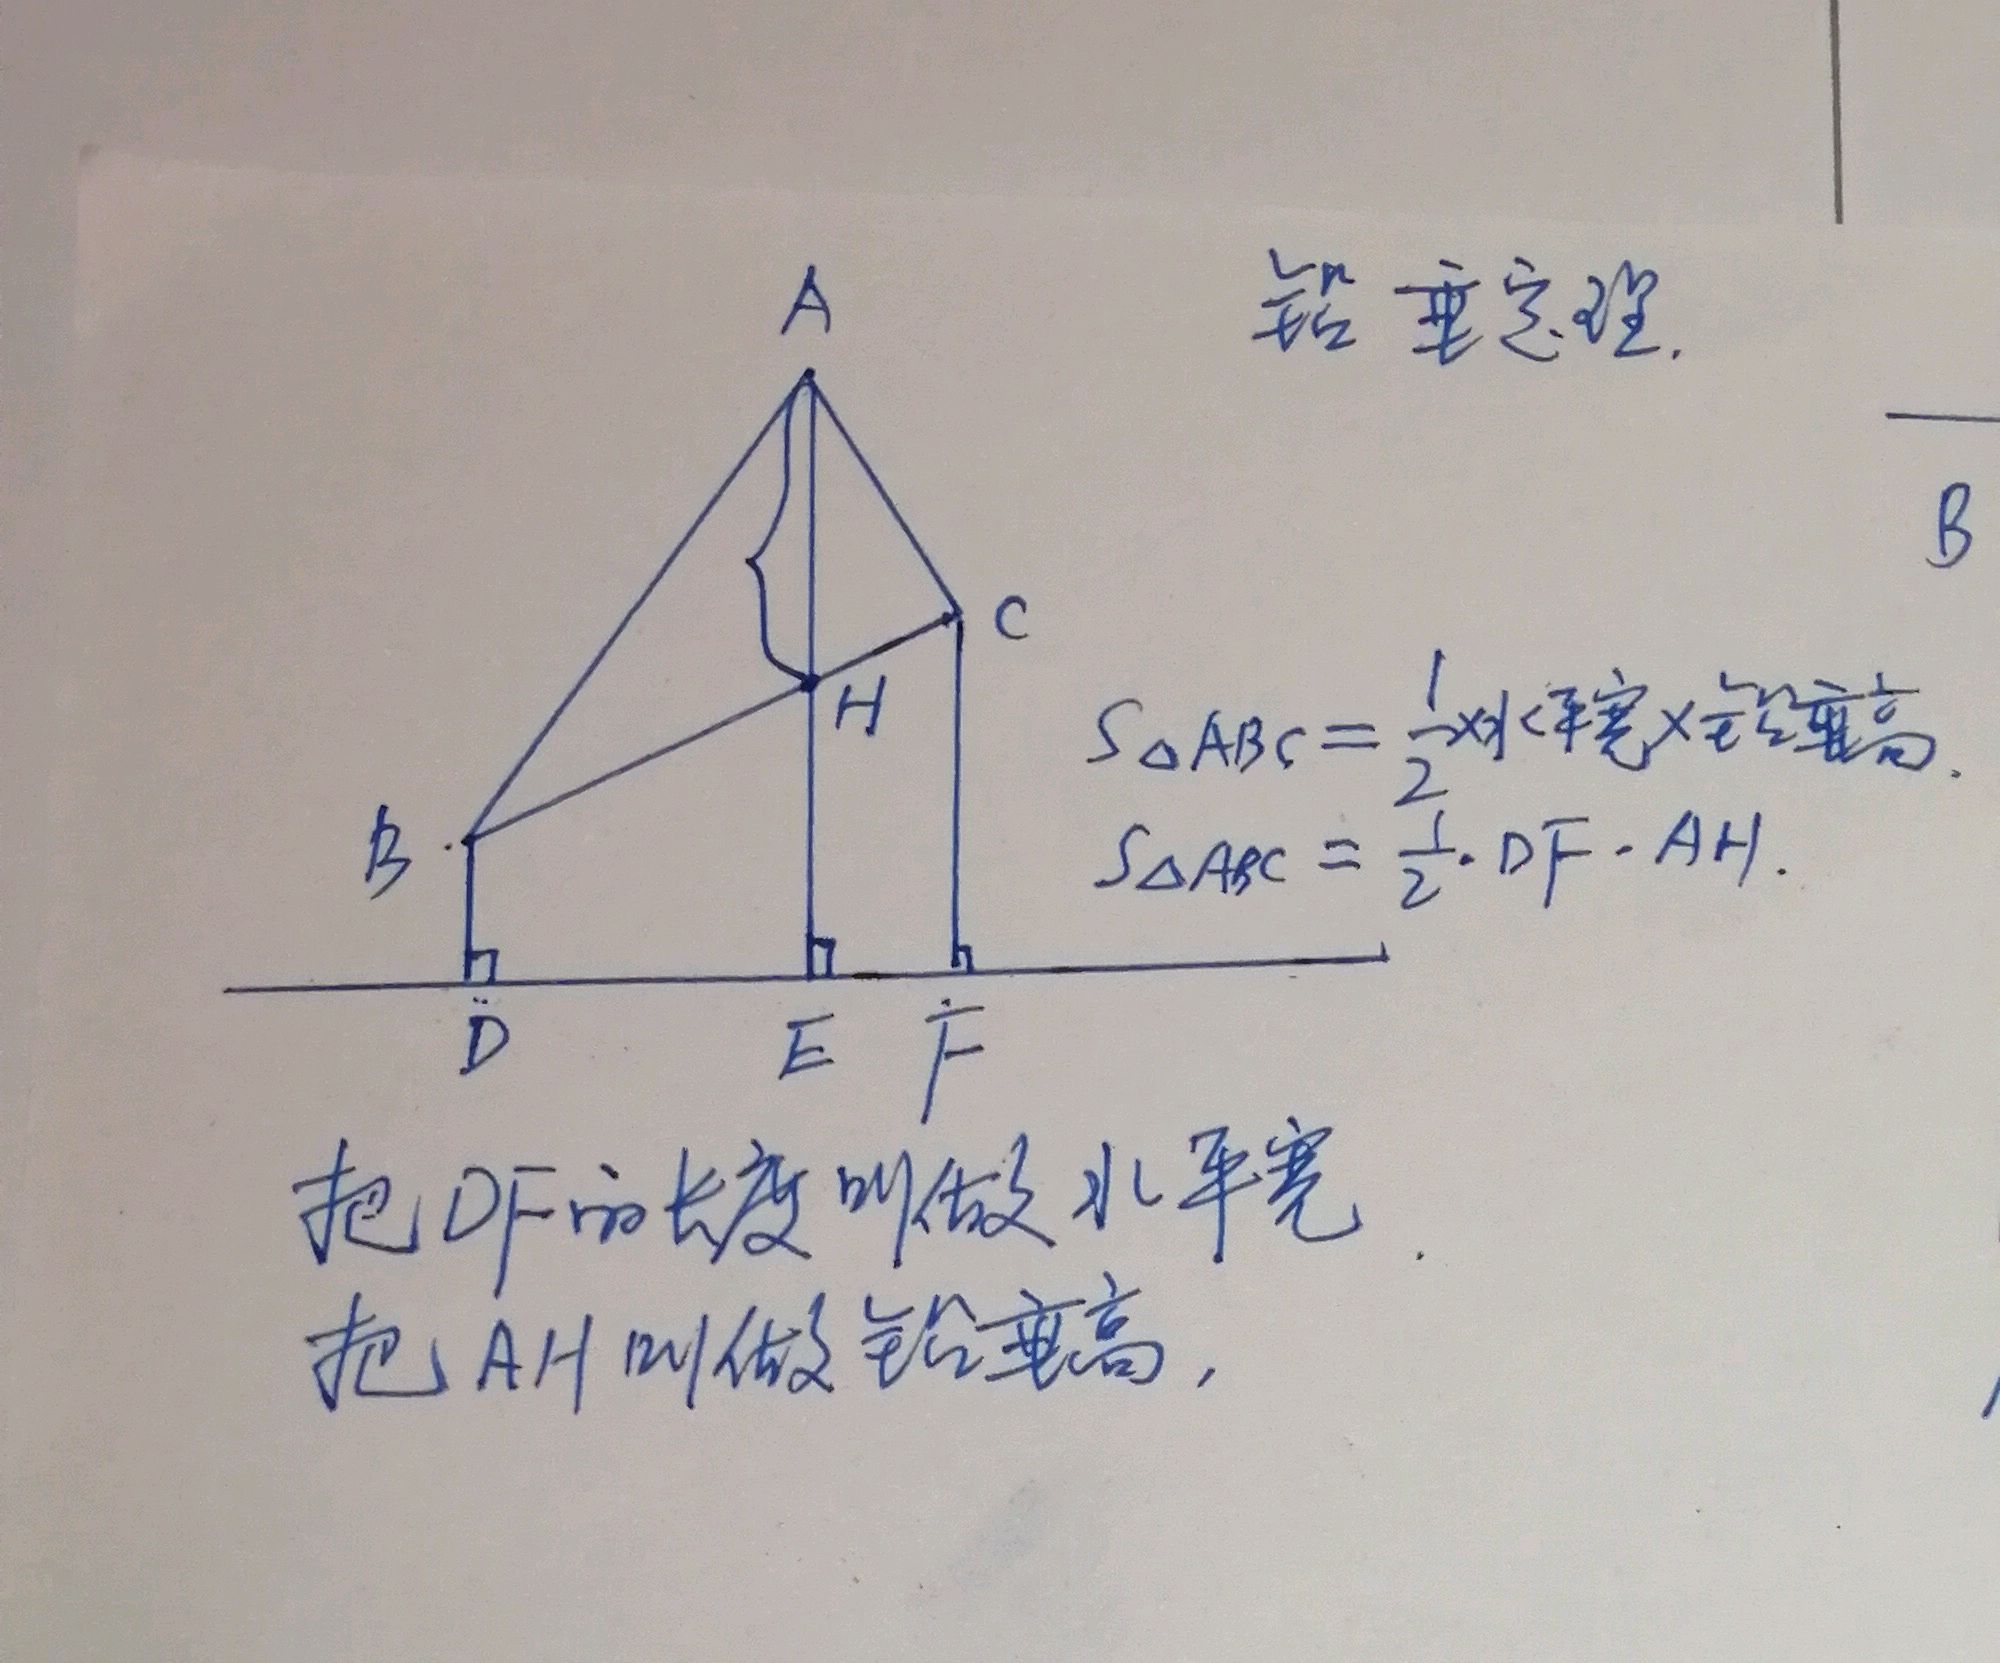 铅垂定理.
A
C
B
H
S△ABC = 1/2 × 水平宽 × 铅垂高.
B
S△ABC = 1/2 · DF · AH.
D E F
把DF的长度叫做水平宽.
把AH叫做铅垂高,